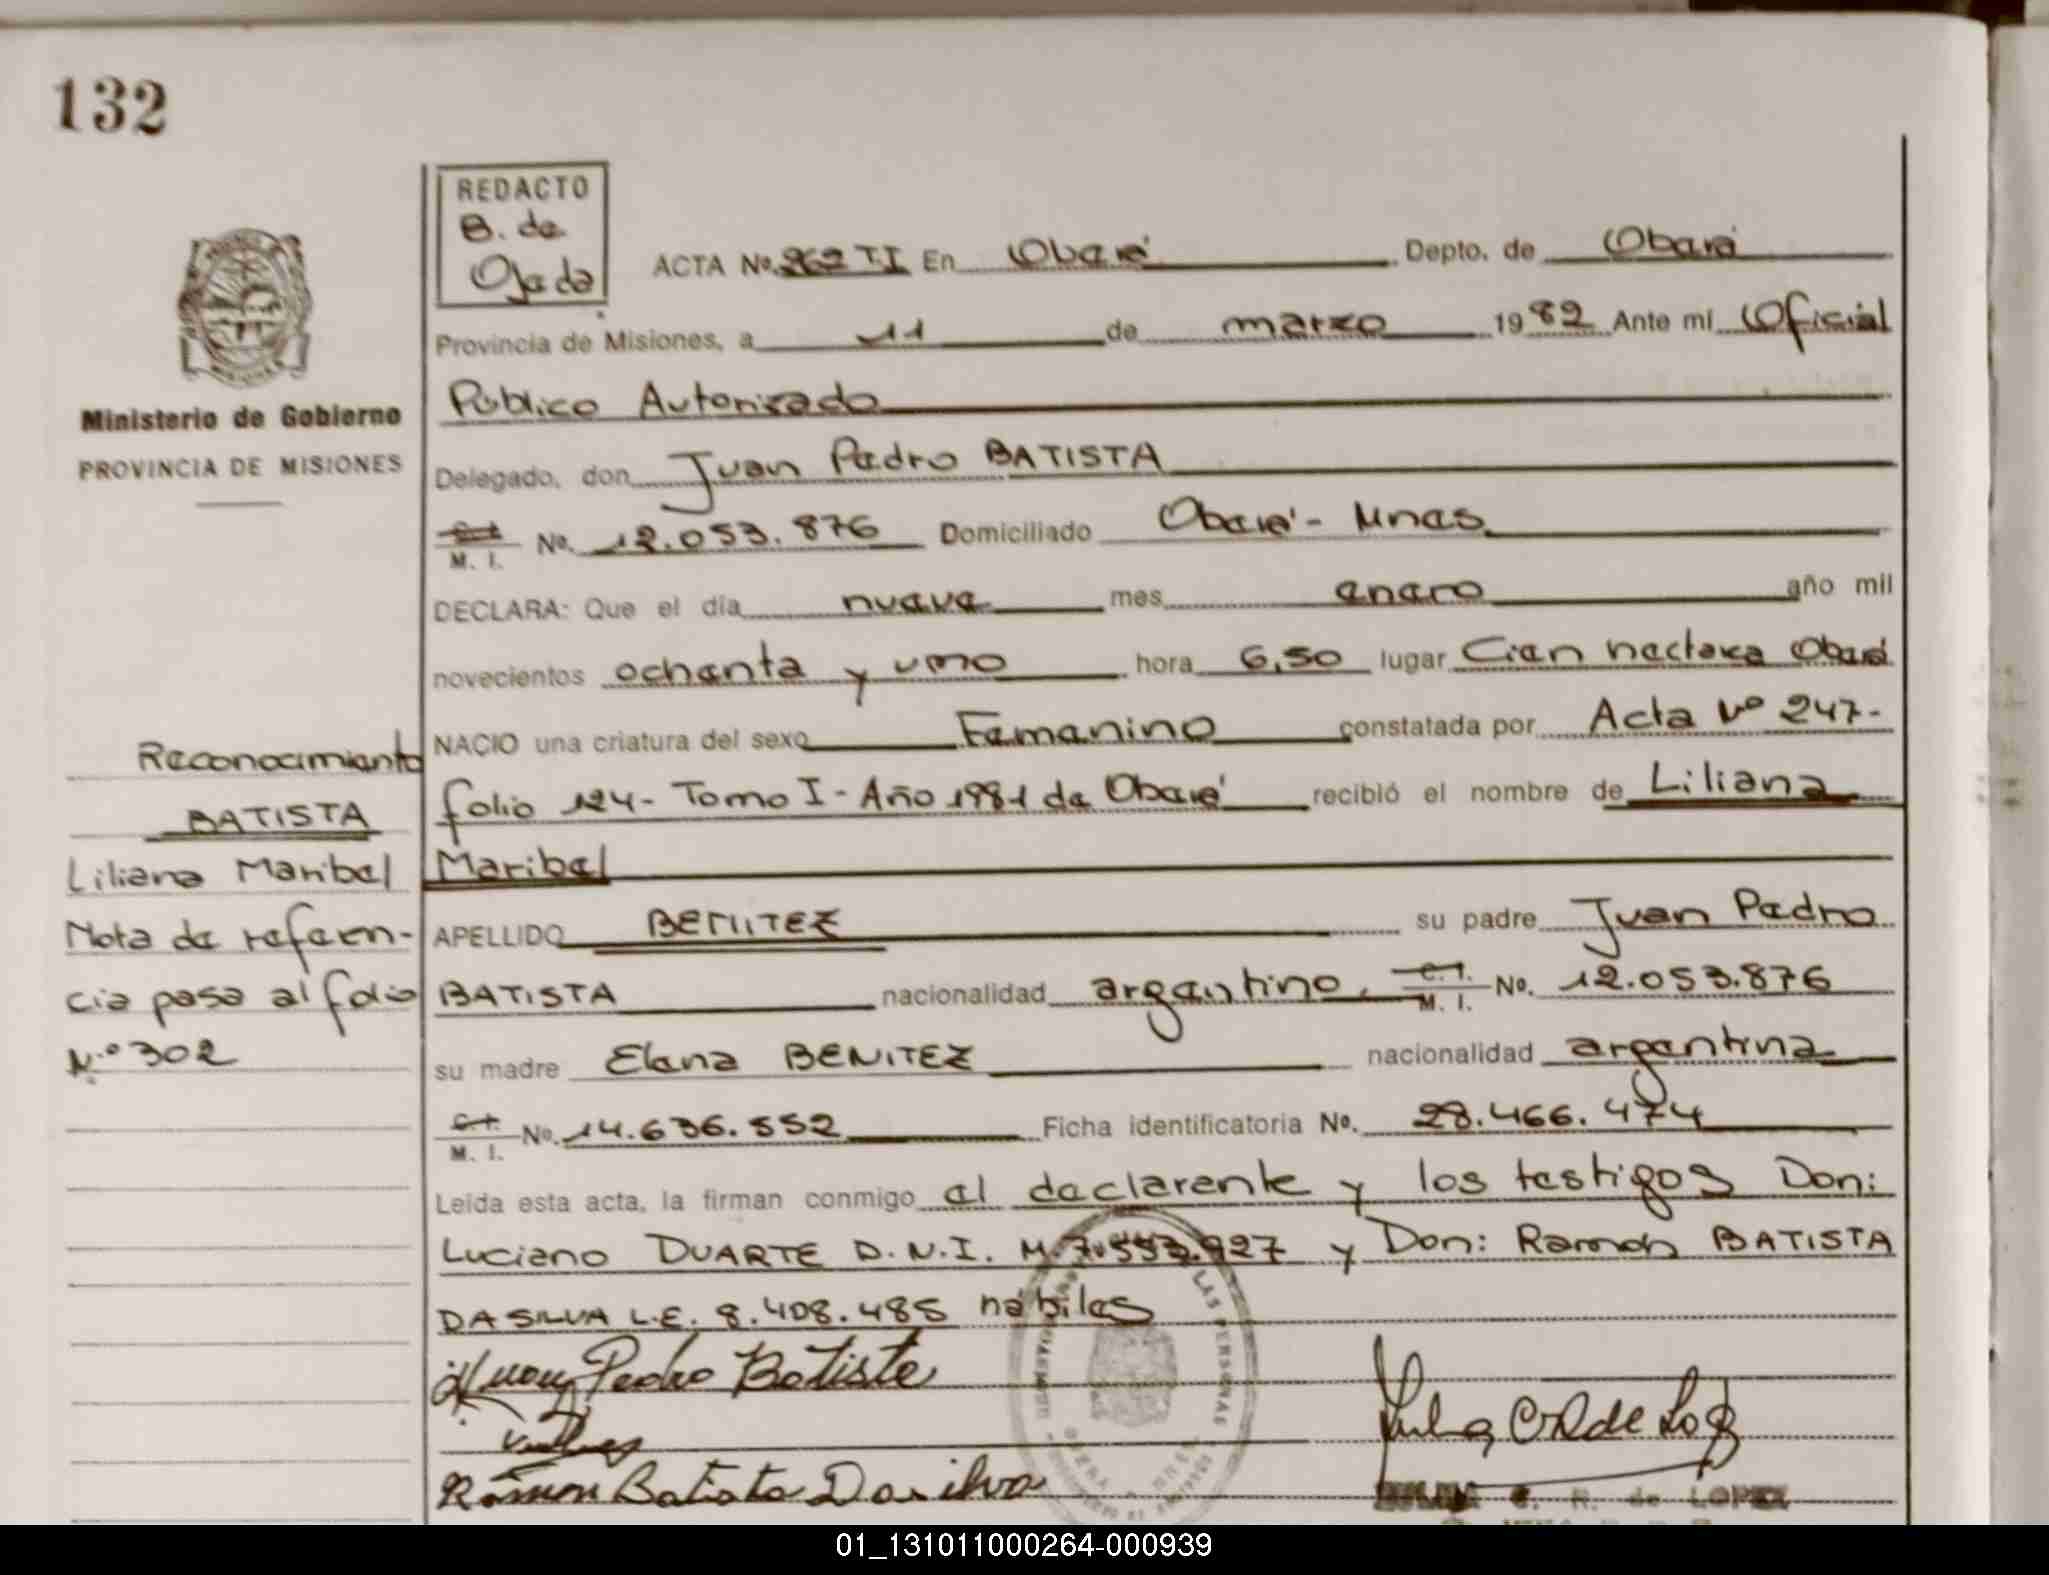 132
REDACTO
B. de
Ojeda
ACTA No. 262 TI En Oberá Depto. de Oberá
Provincia de Misiones, a 11 de marzo 1982 Ante mi Oficial
Público Autorizado
Delegado, don Juan Pedro BATISTA
C.I. M. I. No. 12.053.876 Domiciliado Oberá - Mnes.
DECLARA: Que el día nueve mes enero año mil
novecientos ochenta y uno hora 6,50 lugar Cien hectarea Oberá
NACIO una criatura del sexo Femenino constatada por Acta Nº 247-
folio 124- Tomo I - Año 1981 de Oberá recibió el nombre de Liliana
Maribel
APELLIDO BENITEZ su padre Juan Pedro
BATISTA nacionalidad argentino, C.I. M. I. No. 12.053.876
su madre Elena BENITEZ nacionalidad argentina
C.I. M. I. No. 14.636.552 Ficha identificatoria No. 28.466.474
Leída esta acta, la firman conmigo el declarente y los testigos Don:
Luciano DUARTE D.N.I. M. 7.553.927 y Don: Ramon BATISTA
DA SILVA L.E. 8.408.485 hábiles
Juan Pedro Batiste
Ramon Batista Da silva
LAS PERSONAS
C. R. de LOPEZ
Ministerio de Gobierno
PROVINCIA DE MISIONES
Reconocimiento
BATISTA
Liliana Maribel
Nota de referen-
cia pasa al folio
N.º 302
01_131011000264-000939